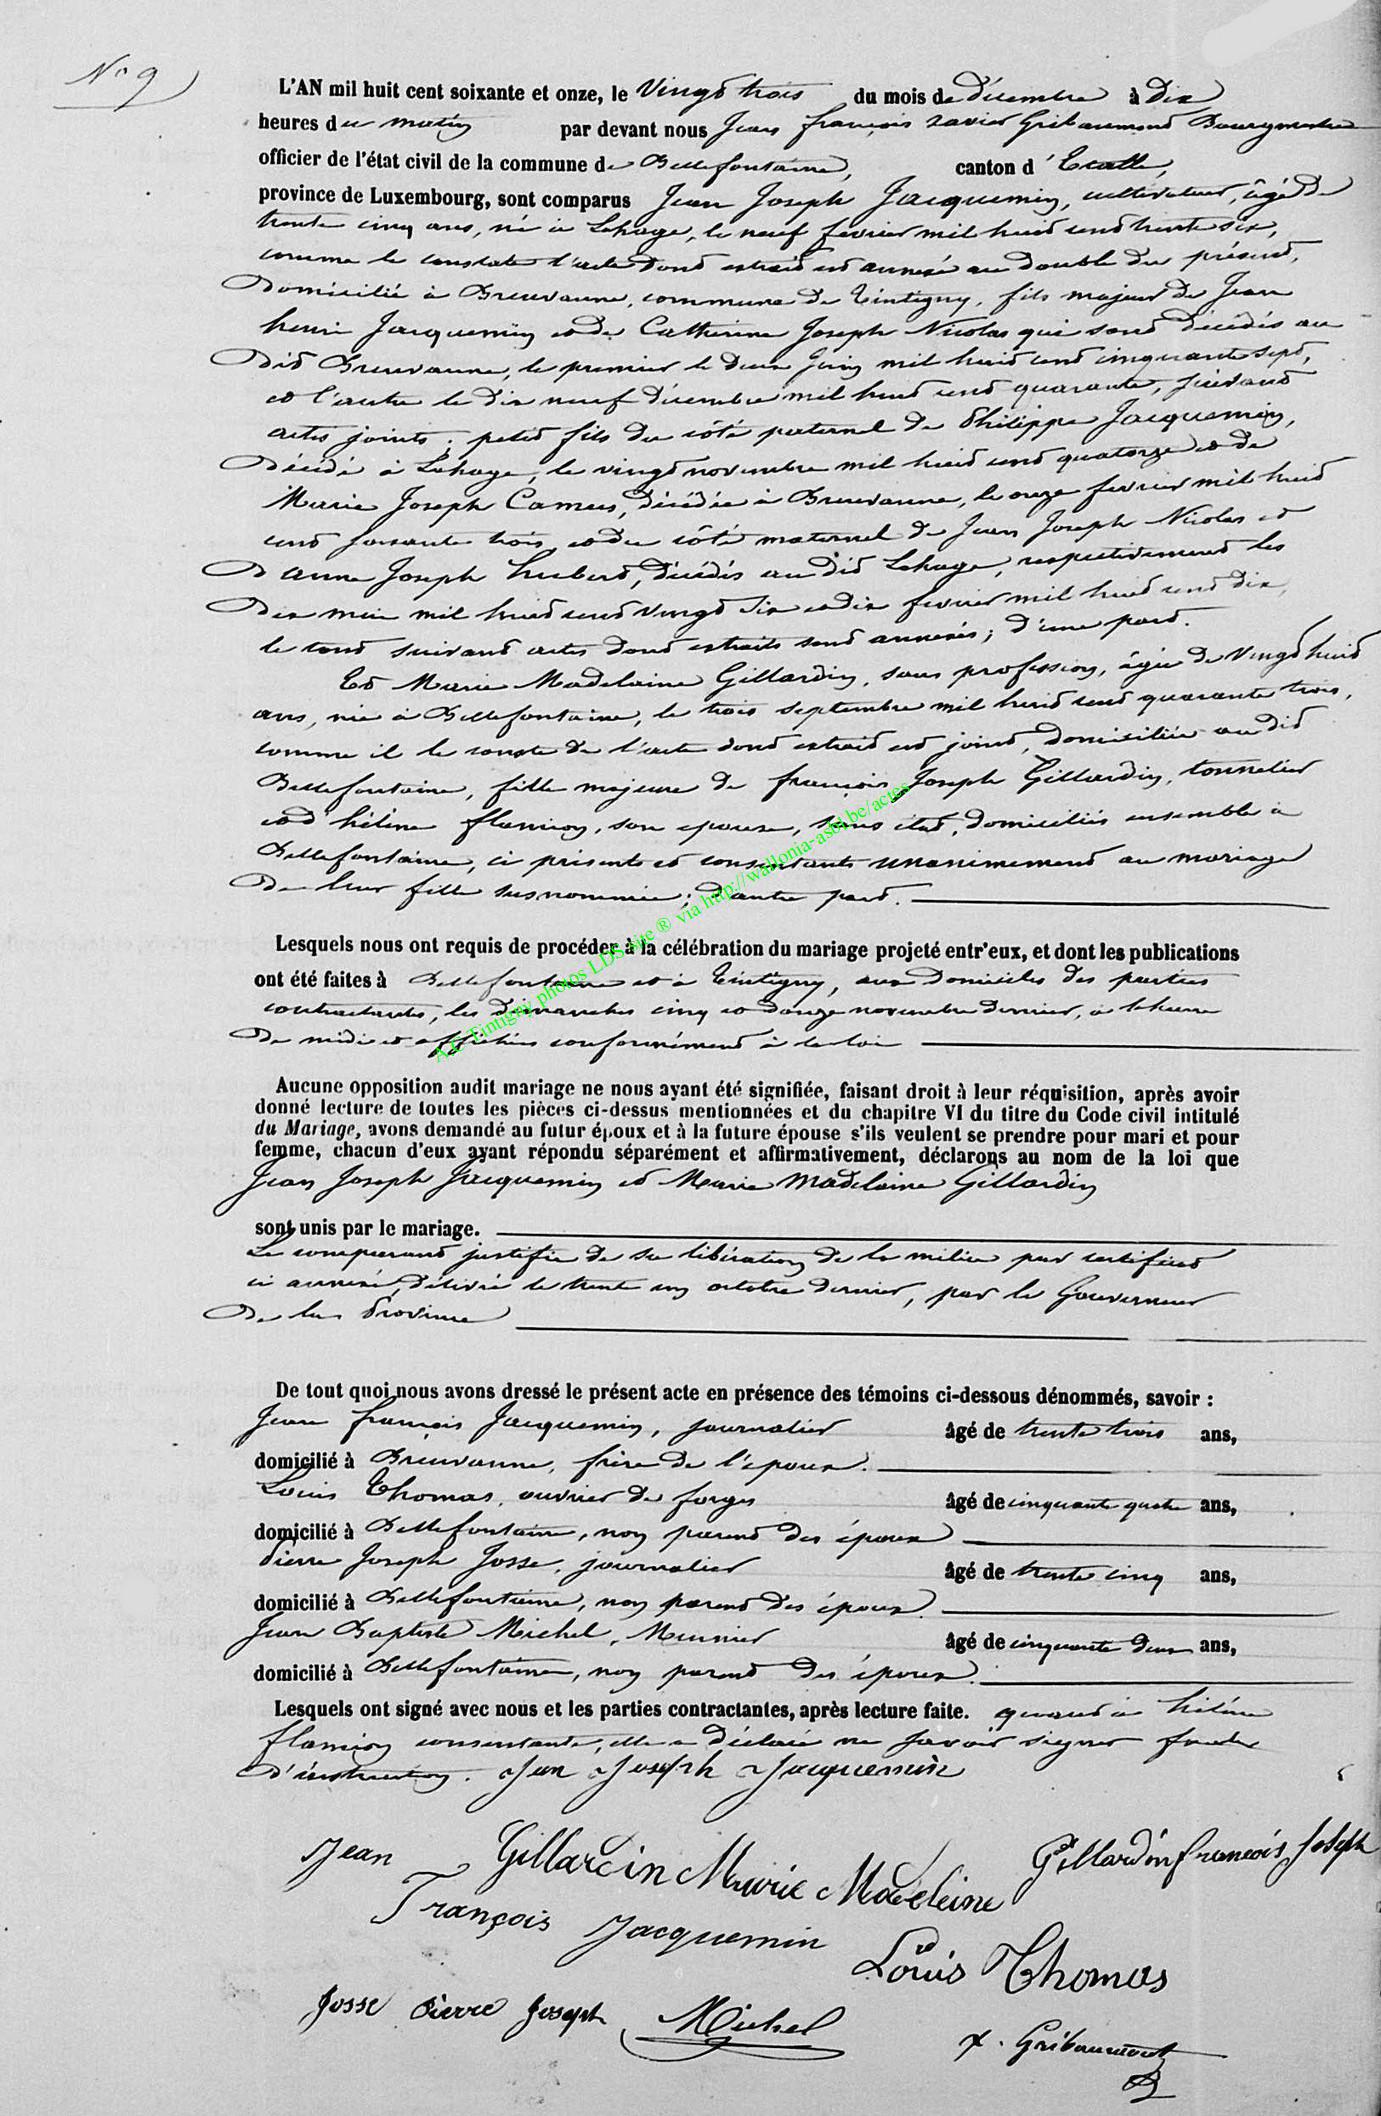 N° 9
L'AN mil huit cent soixante et onze, le Vingt trois du mois de Décembre à Dix
heures du matin par devant nous Jean françois xavier Gribaumont Bourgmestre
officier de l'état civil de la commune de Bellefontaine, canton d'Etalle,
province de Luxembourg, sont comparus Jean Joseph Jacquemin, cultivateur, âgé de
trente cinq ans, né à Lahage, le neuf fevrier mil huit cent trente six,
comme le constate l'acte dont extrait est annexé au double du présent,
Domicilié à Breuvanne, commune de Tintigny, fils majeur de Jean
henri Jacquemin et de Catherine Joseph Nicolas qui sont décédés au
Dit Breuvanne, le premier le deux Juin mil huit cent cinquante sept,
et l'autre le dix neuf décembre mil huit cent quarante, suivant
actes joints; petit fils du côté paternel de Philippe Jacquemin,
Décédé à Lahage, le vingt novembre mil huit cent quatorze et de
Marie Joseph Camus, décédée à Breuvanne, le onze fevrier mil huit
cent soixante trois et du côté maternel de Jean Joseph Nicolas et
D'anne Joseph hubert, décédés au dit Lahage, respectivement les
Dix mai mil huit cent vingt six et dix fevrier mil huit cent dix,
le tout suivant actes dont extraits sont annexés; d'une part.
Et Marie Madelaine Gillardin, sans profession, âgée de vingt huit
ans, née à Bellefontaine, le trois septembre mil huit cent quarante trois,
comme il le conste de l'acte dont extrait est joint, domiciliée au dit
Bellefontaine, fille majeure de françois Joseph Gillardin, tonnelier
et d'hélène flamion, son epouse, sans état, domiciliés ensemble à
Bellefontaine, ci présents et consentants unanimement au mariage
De leur fille susnommée; d'autre part.
Lesquels nous ont requis de procéder à la célébration du mariage projeté entr'eux, et dont les publications
ont été faites à Bellefontaine et à Tintigny, aux domiciles des parties
contractantes, les dimanches cinq et douze novembre dernier, à l'heure
De midi et affichées conformément à la loi
Aucune opposition audit mariage ne nous ayant été signifiée, faisant droit à leur réquisition, après avoir
donné lecture de toutes les pièces ci-dessus mentionnées et du chapitre VI du titre du Code civil intitulé
du Mariage, avons demandé au futur époux et à la future épouse s'ils veulent se prendre pour mari et pour
femme, chacun d'eux ayant répondu séparément et affirmativement, déclarons au nom de la loi que
Jean Joseph Jacquemin et Marie Madelaine Gillardin
sont unis par le mariage.
Le comparant justifie de sa libération de la milice par certificat
ci annexé, délivré le trente un octobre dernier, par le Gouverneur
De la Province
De tout quoi nous avons dressé le présent acte en présence des témoins ci-dessous dénommés, savoir :
Jean françois Jacquemin, journalier âgé de trente trois ans,
domicilié à Breuvanne, frère de l'époux.
Louis Thomas, ouvrier de forges âgé de cinquante quatre ans,
domicilié à Bellefontaine, non parent des époux
Pierre Joseph Josse, journalier âgé de trente cinq ans,
domicilié à Bellefontaine, non parent des époux.
Jean Baptiste Michel, Meunier âgé de cinquante deux ans,
domicilié à Bellefontaine, non parent des époux.
Lesquels ont signé avec nous et les parties contractantes, après lecture faite. quant à hélène
flamion consentante, elle a déclaré ne savoir signer faute
D'instruction. Jan Joseph Jacquemin
Jean Gillardin Marie Madeleine Gillardin francois Joseph
François Jacquemin Louis Thomas
Josse Pierre Joseph Michel x. Gribaumont
A.E. Tintigny photos LDS site ® via http://wallonia-asbl.be/actes